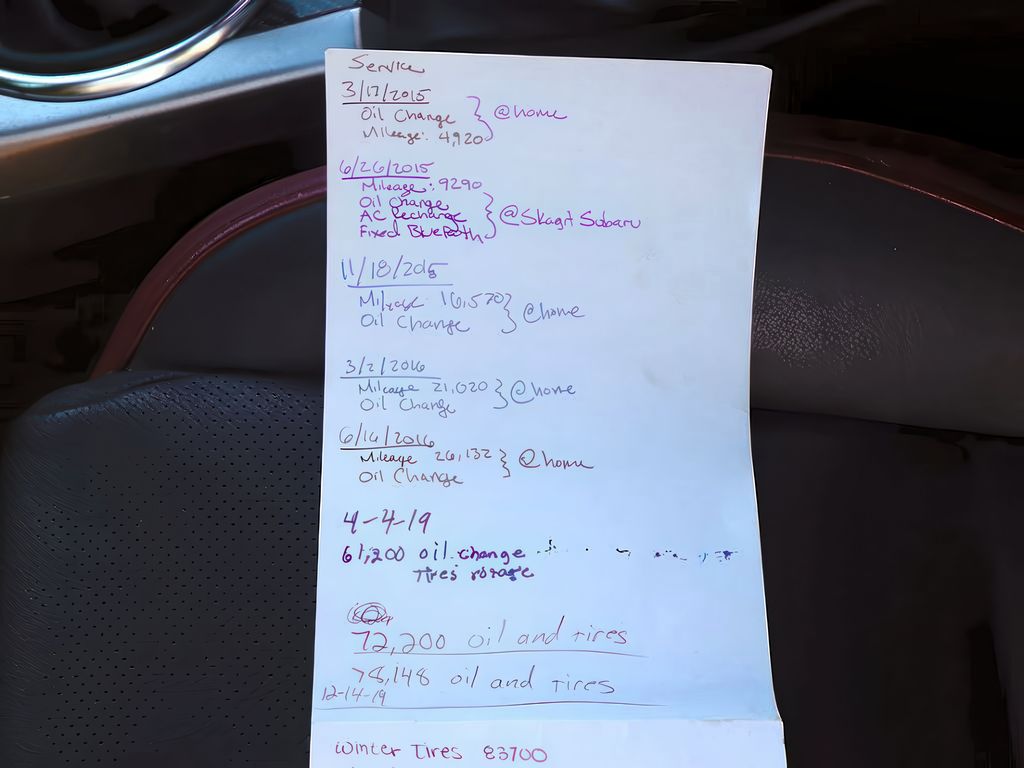 Service
3/17/2015
Oil Change
Mileage: 4,920
@home
6/26/2015
Mileage: 9290
Oil Change
AC Recharge
Fixed
@Skagit Subaru
11/18/2015
Mileage 16,570
Oil Change
@home
3/2/2016
Mileage 21,020
Oil Change
@home
6/16/2016
Mileage 26,132
Oil Change
@home
4-4-19
61,200 oil change
Tires rotate
72,200 oil and tires
78,148 oil and tires
12-14-19
Winter Tires 83700